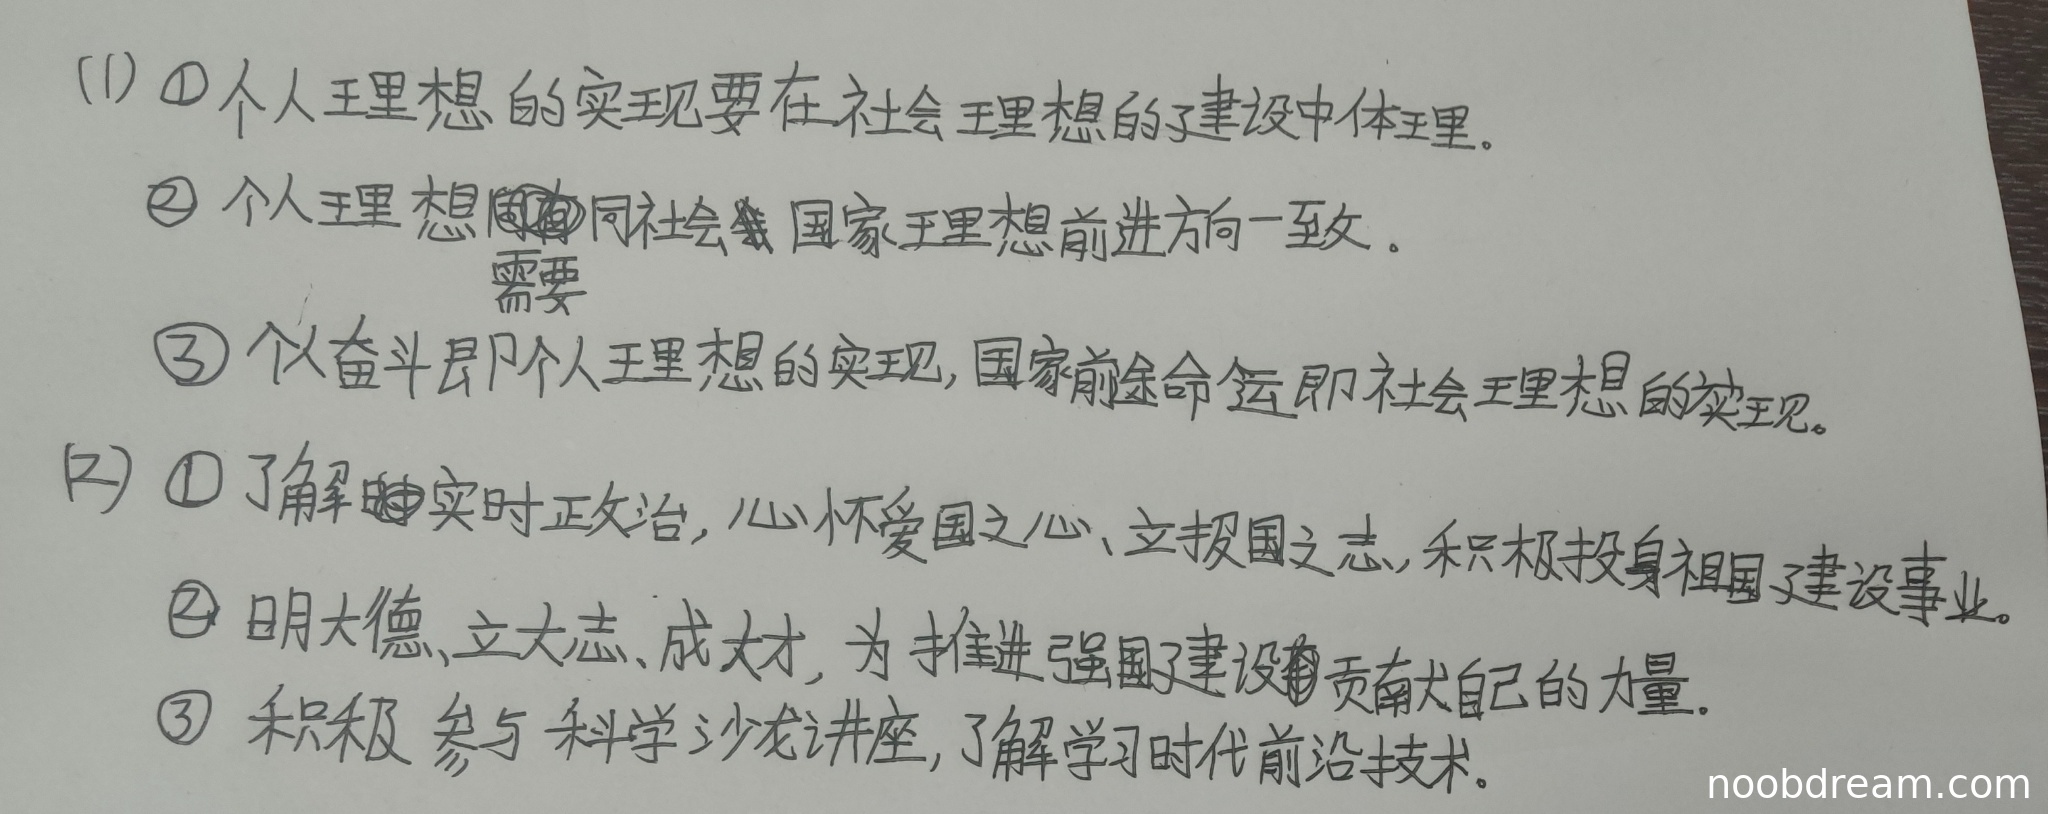 (1) ①个人理想的实现要在社会理想的建设中体理。
②个人理想同社会国家理想前进方向一致。
需要
③个人奋斗即个人理想的实现,国家前途命运即社会理想的实现。
(2) ①了解实时正政治,心怀爱国之心、立报国之志,积极投身祖国建设事业。
②明大德、立大志、成大才,为推进强国建设贡献自己的力量。
③积极参与科学沙龙讲座,了解学习时代前沿技术。
noobdream.com